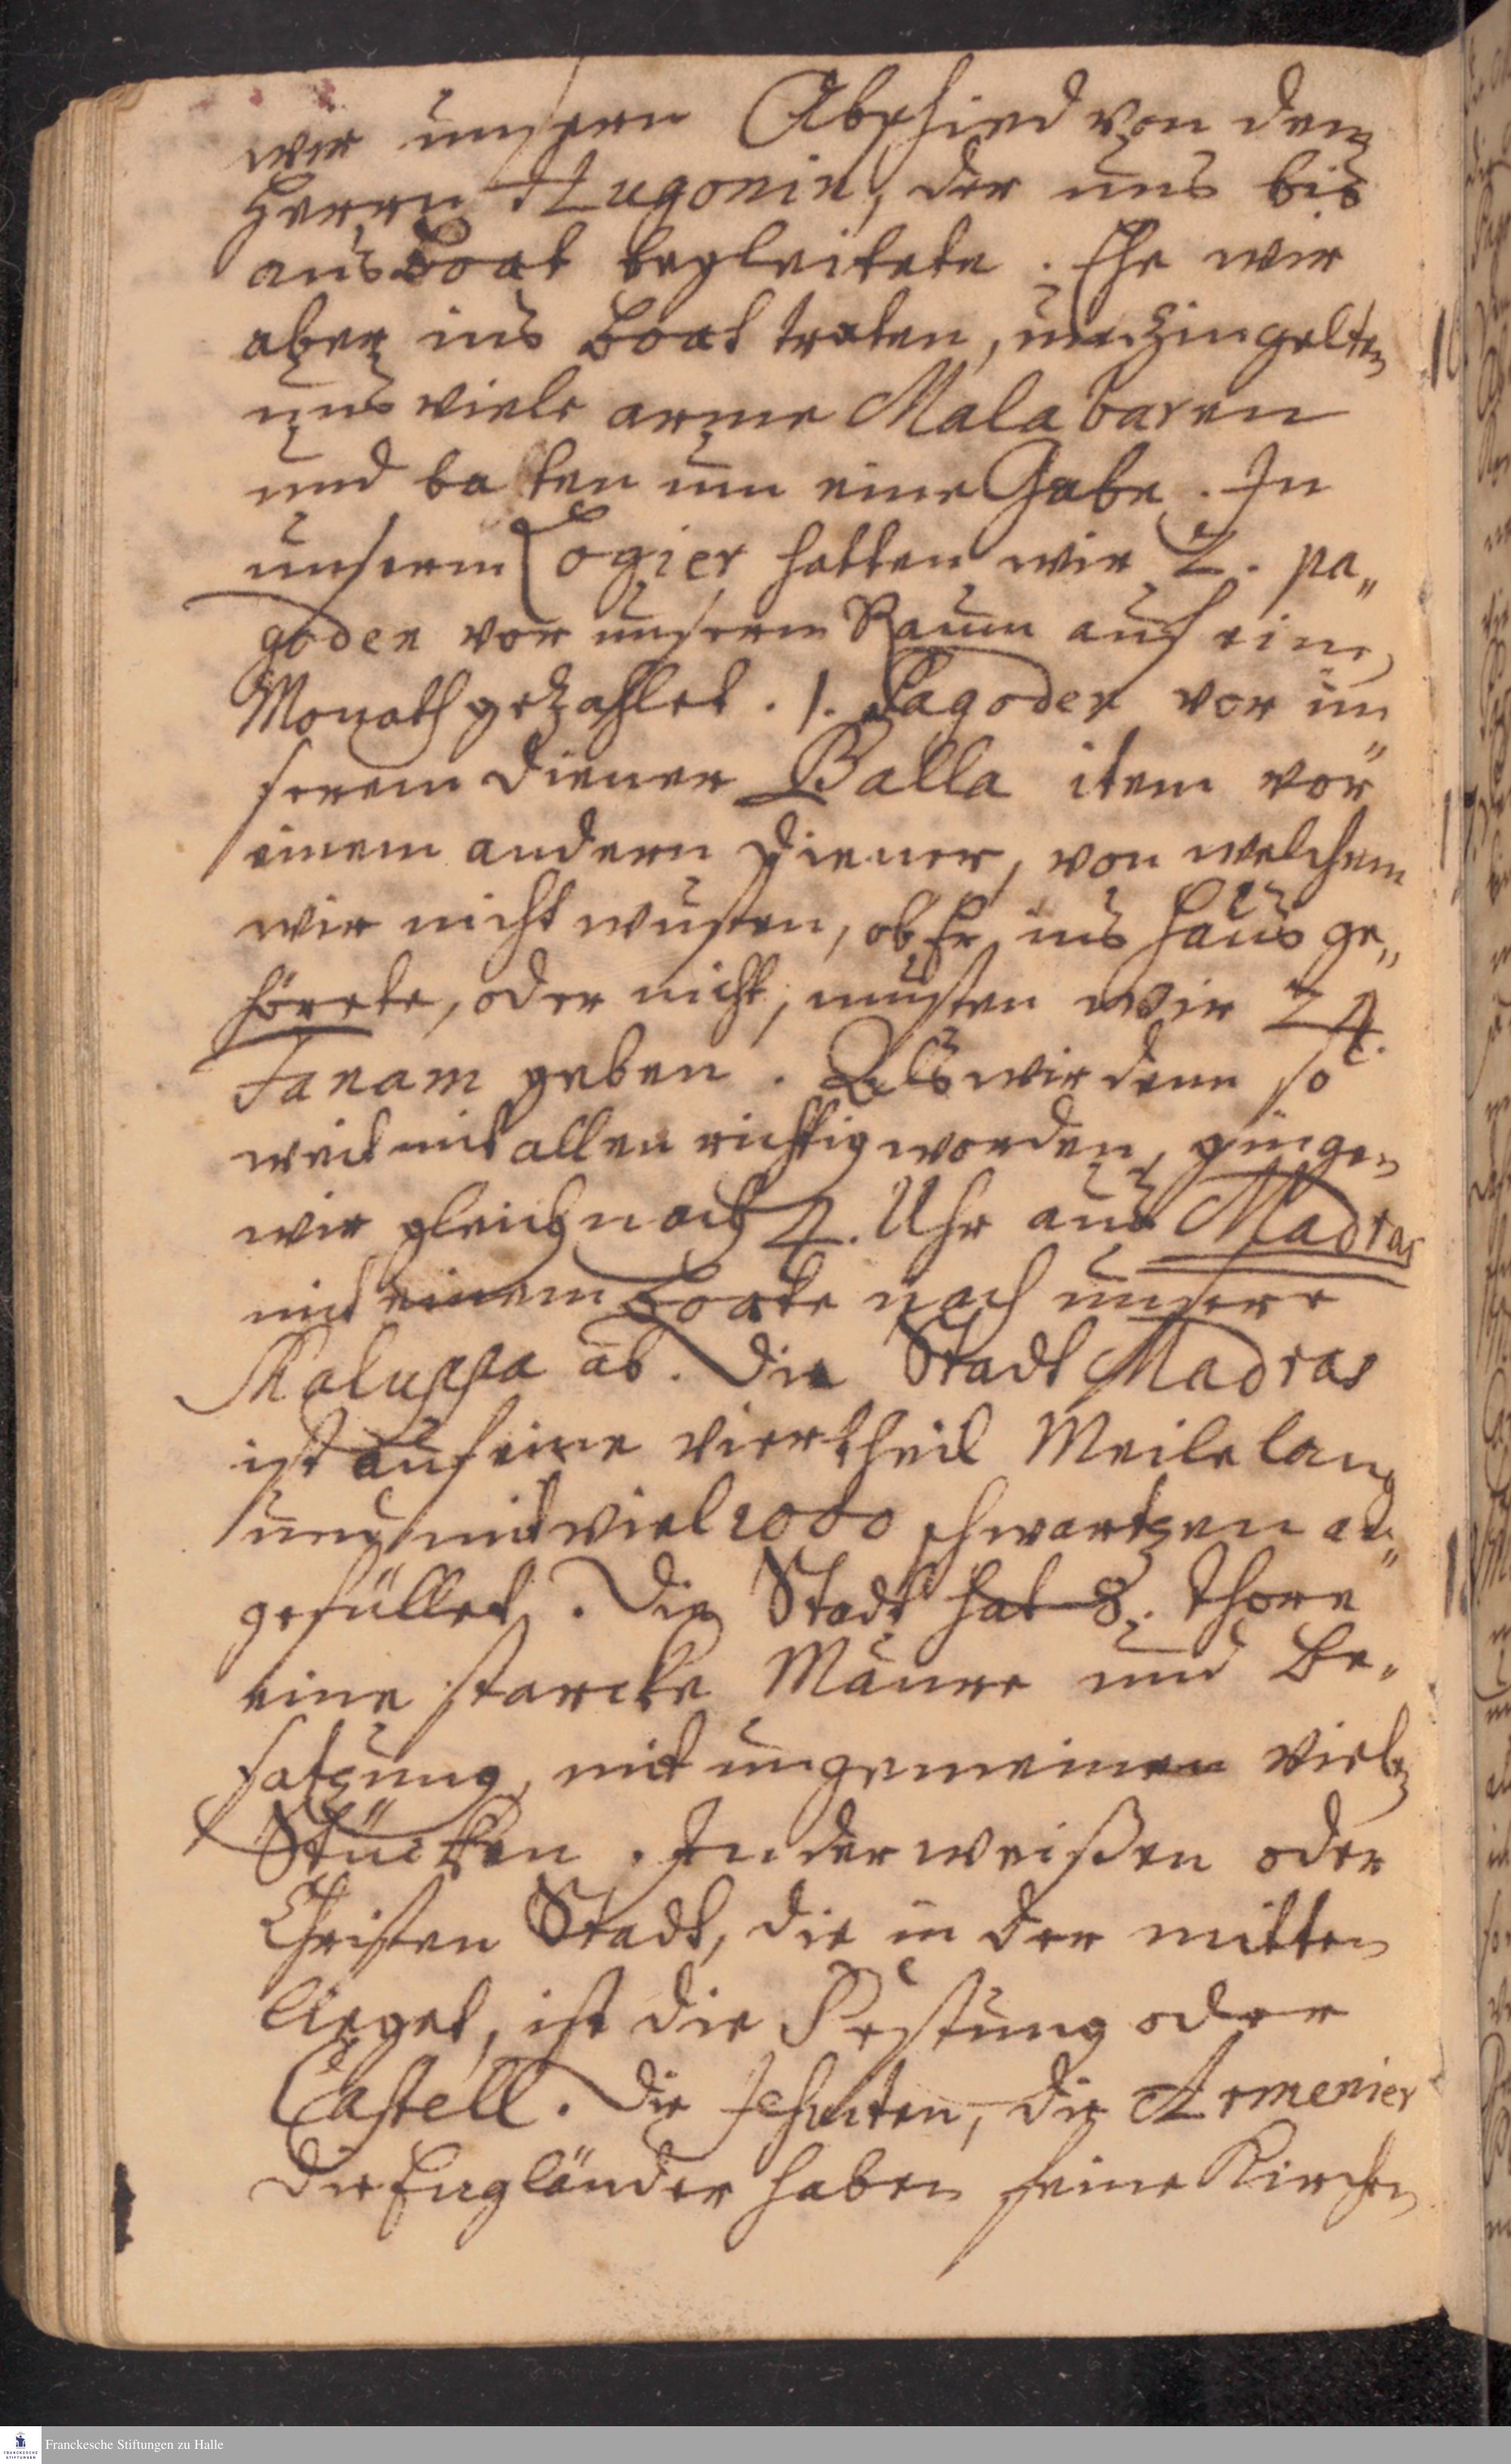 wir unsern Abschied von dem
Herrn Hugonin, der uns bis
ans Boat begleitete. Ehe wir
aber ins Boat traten, umzingelten
uns viele arme Malabaren
und baten um eine Gabe. In
unserm Logier hatten wir 2. pa„
goden vor unserm Raum auf ein
Monath gezahlet. 1. Pagoden vor un„
serem Diener Balla item vor
einem andern Diener, von welchem
wir nicht wusten, ob Er ins Haus ge„
hörete, oder nicht, musten wir 24.
Fanam geben. Als wir denn so
weit mit allen richtig worden, gingen
wir gleich nach 4. Uhr aus Madras
mit einem Boate nach unsere
Schaluppa ab. Die Stadt Madras
ist auf eine viertheil Meile lang
und mit viel 1000 schwartzen an„
gefüllet. Die Stadt hat 8. Thore
eine starcke Mauer und Be„
satzung, mit ungemeinen vielen
Stücken. In der weißen oder
Christen Stadt, die in der mitten
lieget, ist die Festung oder
Castell. Die Jesuiten, die Armenier
die Engländer haben seine Kirchen
Franckesche Stiftungen zu Halle